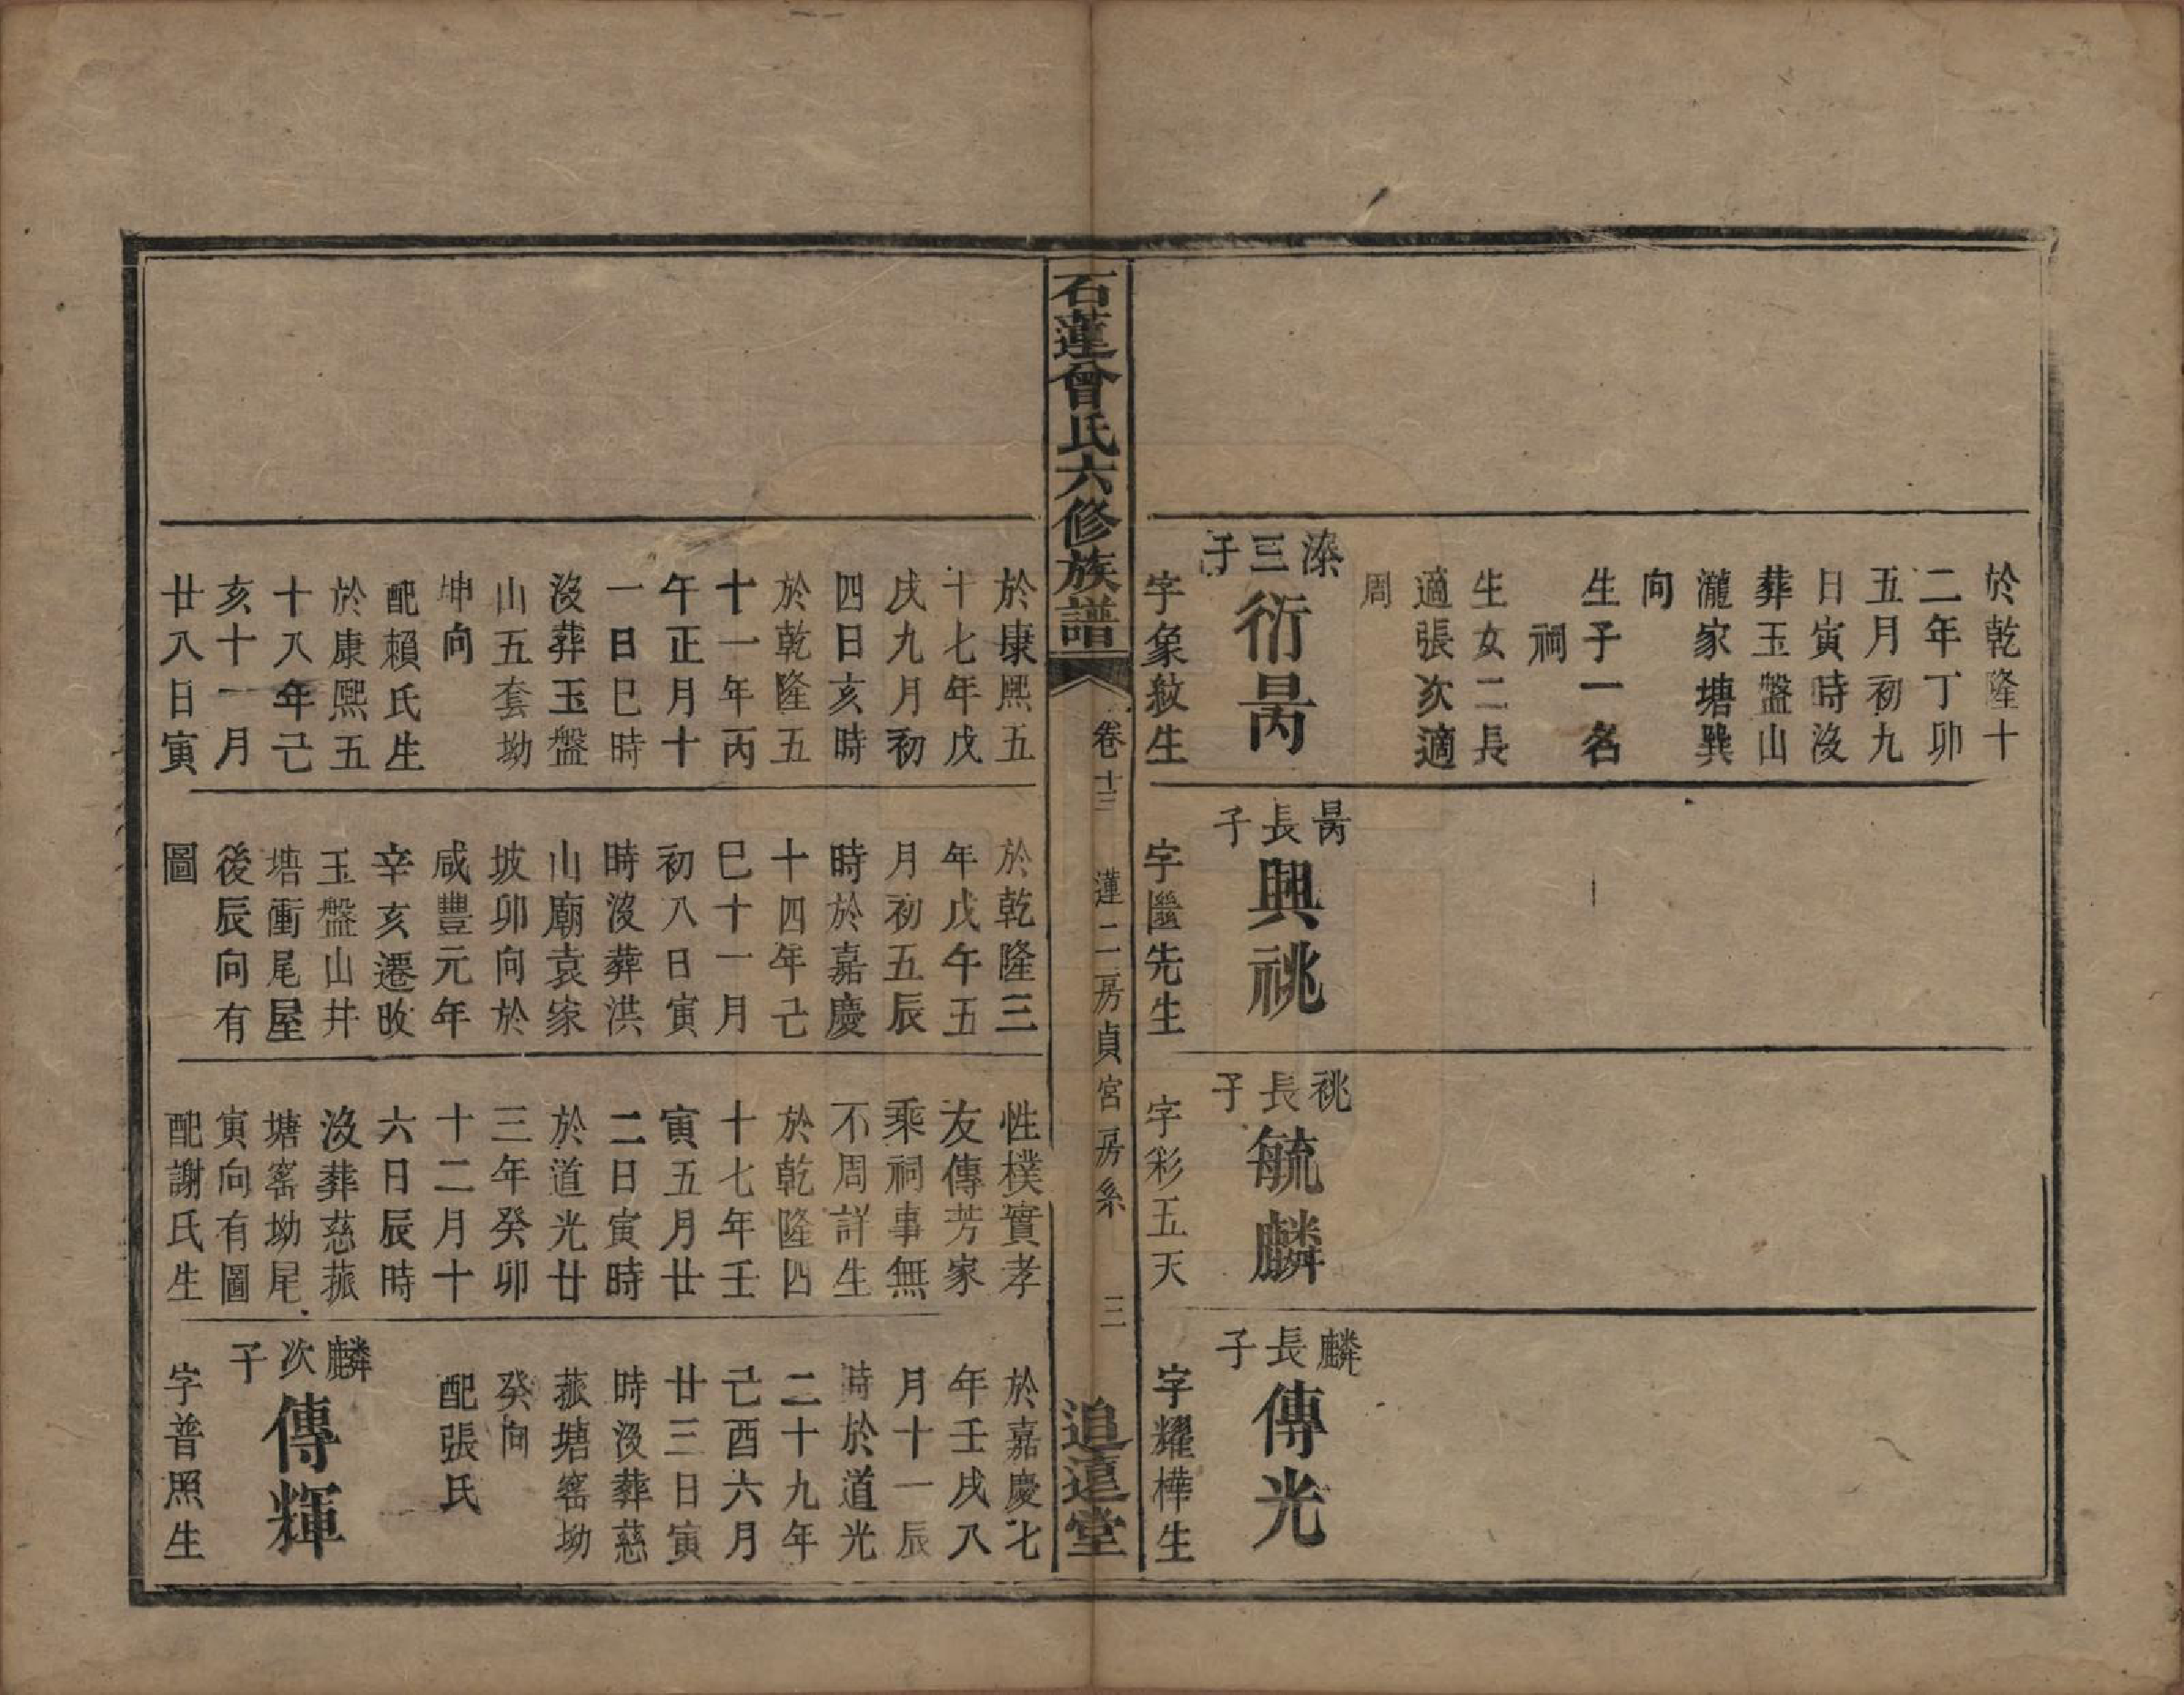 於乾隆十
二年丁卯
五月初九
日寅時沒
葬玉盤山
瀧家塘巽
向
生子一名
祠
生女二長
適張次適
周
滐三子
衍昺
字象敘生
昺長子
興祧
字繼先生
祧長子
毓麟
字彩五天
麟長子
傳光
字耀樺生
石蓮曾氏六修族譜
卷十三
蓮二房貞宮房系
三
追遠堂
於康熙五
十七年戊
戌九月初
四日亥時
於乾隆五
十一年丙
午正月十
一日巳時
沒葬玉盤
山五套坳
坤向
配賴氏生
於康熙五
十八年己
亥十一月
廿八日寅
於乾隆三
年戊午五
月初五辰
時於嘉慶
十四年己
巳十一月
初八日寅
時沒葬洪
山廟袁家
坡卯向於
咸豐元年
辛亥遷攺
玉盤山井
塘衝尾屋
後辰向有
圖
性樸實孝
友傳芳家
乘祠事無
不周詳生
於乾隆四
十七年壬
寅五月廿
二日寅時
於道光廿
三年癸卯
十二月十
六日辰時
沒葬慈菰
塘窰坳尾
寅向有圖
配謝氏生
於嘉慶七
年壬戌八
月十一辰
時於道光
二十九年
己酉六月
廿三日寅
時沒葬慈
菰塘窰坳
癸向
配張氏
麟次子
傳輝
字普照生